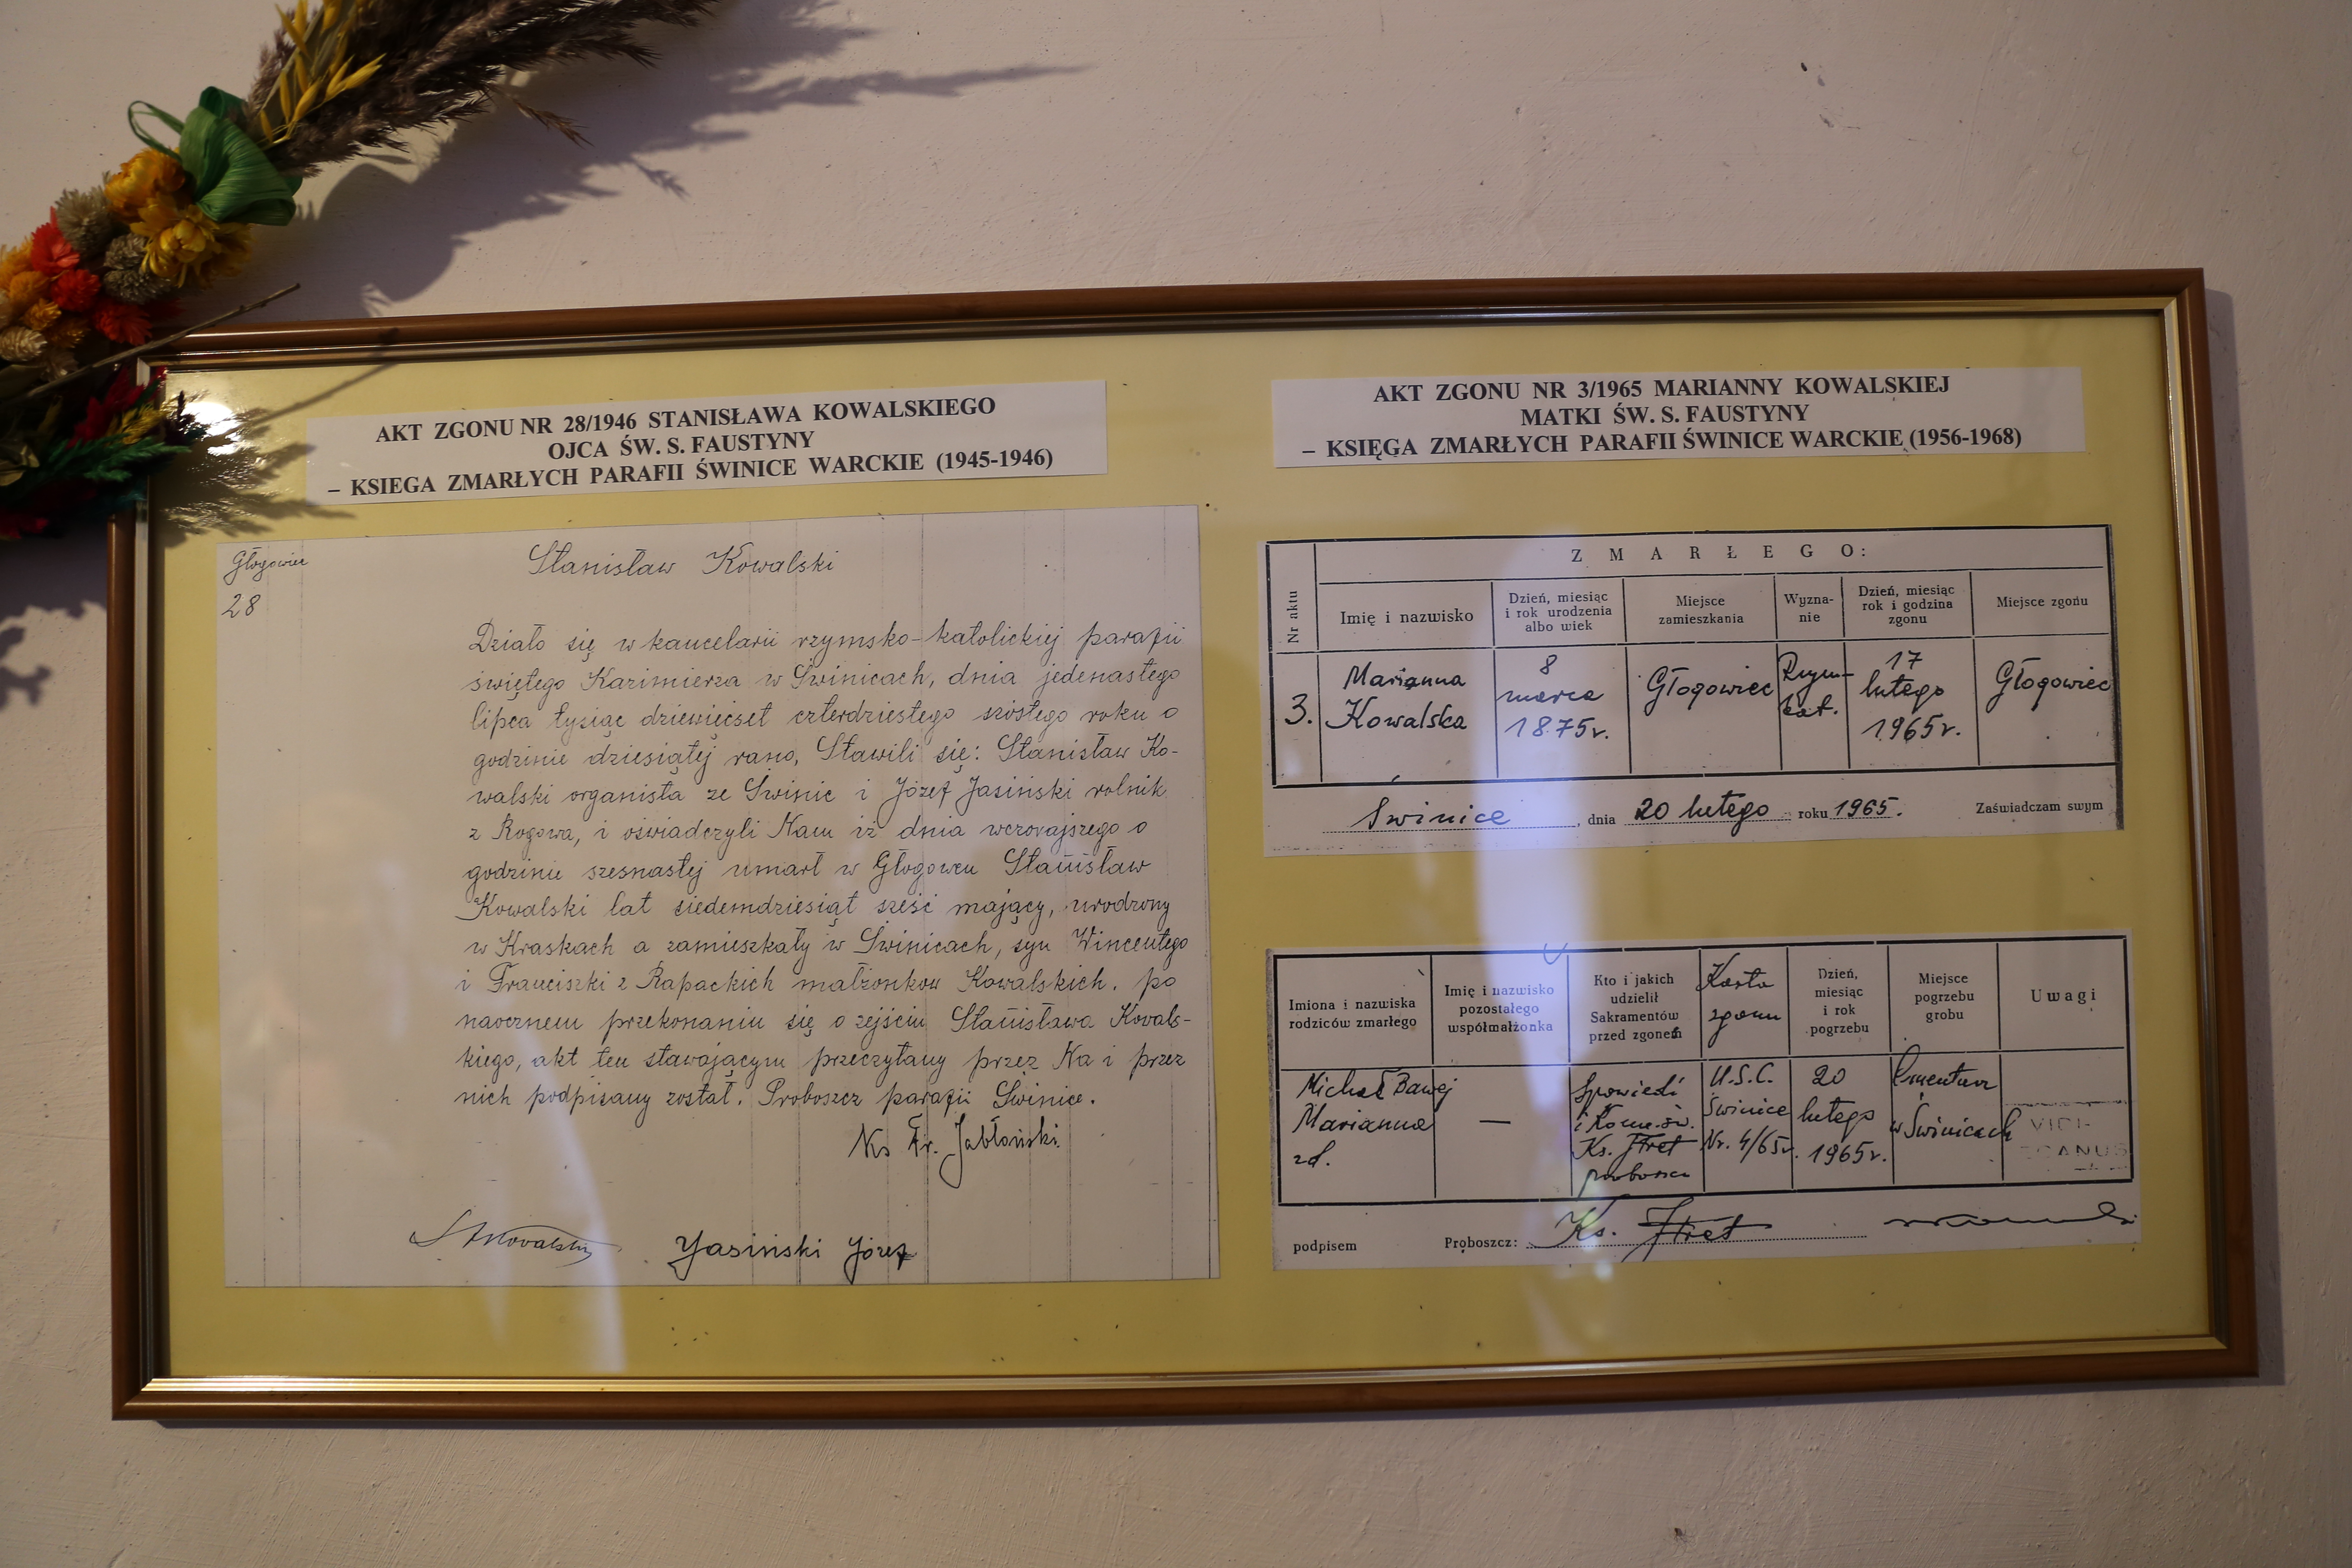 AKT ZGONU NR 28/1946 STANISŁAWA KOWALSKIEGO
OJCA ŚW. S. FAUSTYNY
– KSIEGA ZMARŁYCH PARAFII ŚWINICE WARCKIE (1945-1946)
Głogowiec
28
Stanisław Kowalski
Działo się w kancelarii rzymsko-katolickiej parafii
świętego Kazimierza w Świnicach, dnia jedenastego
lipca tysiąc dziewięćset czterdziestego szóstego roku o
godzinie dziesiątej rano, Stawili się: Stanisław Ko-
walski organista ze Świnic i Józef Jasiński rolnik
z Rogowa, i oświadczyli Nam iż dnia wczorajszego o
godzinie szesnastej umarł w Głogowcu Stanisław
Kowalski lat siedemdziesiąt sześć mający, urodzony
w Kraskach a zamieszkały w Świnicach, syn Wincentego
i Franciszki z Rapackich małżonków Kowalskich. po
naocznem przekonaniu się o zejściu Stanisława Kowals-
kiego, akt ten stawającym przeczytany przez Na i przez
nich podpisany został. Proboszcz parafii Świnice.
Ks Fr. Jabłoński
St Kowalski Jasiński Józef
AKT ZGONU NR 3/1965 MARIANNY KOWALSKIEJ
MATKI ŚW. S. FAUSTYNY
– KSIĘGA ZMARŁYCH PARAFII ŚWINICE WARCKIE (1956-1968)
ZMARŁEGO:
Nr aktu
Imię i nazwisko
Dzień, miesiąc
i rok urodzenia
albo wiek
Miejsce
zamieszkania
Wyzna-
nie
Dzień, miesiąc
rok i godzina
zgonu
Miejsce zgonu
3.
Marianna
Kowalska
8
marca
1875r.
Głogowiec
Rzym-
kat.
17
lutego
1965r.
Głogowiec
Świnice, dnia 20 lutego roku 1965. Zaświadczam swym
Imiona i nazwiska
rodziców zmarłego
Imię i nazwisko
pozostałego
współmałżonka
Kto i jakich
udzielił
Sakramentów
przed zgonem
Karta
zgonu
Dzień,
miesiąc
i rok
pogrzebu
Miejsce
pogrzebu
grobu
Uwagi
Michał Bawej
Marianna
zd.
—
Spowiedź
i Kom. św.
Ks.
proboszcz
U.S.C.
Świnice
Nr. 4/65r.
20
lutego
1965r.
Cmentarz
w Świnicach
VIDI-
podpisem Proboszcz: Ks.